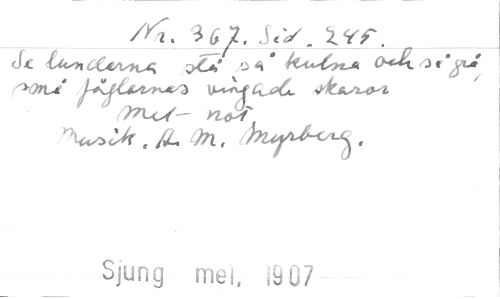 Nr. 367. Sid. 245.
Se lunderna stå så kulna och så grå,
små fåglarnas vingade skaror
Met- not
Musik. A. M. Myrberg.
Sjung mel, 1907